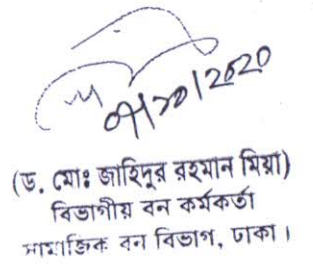 (ড. মোঃ জাহিদুর রহমান মিয়া)
বিভাগীয় বন কর্মকর্তা
সামাজিক বন বিভাগ, ঢাকা।